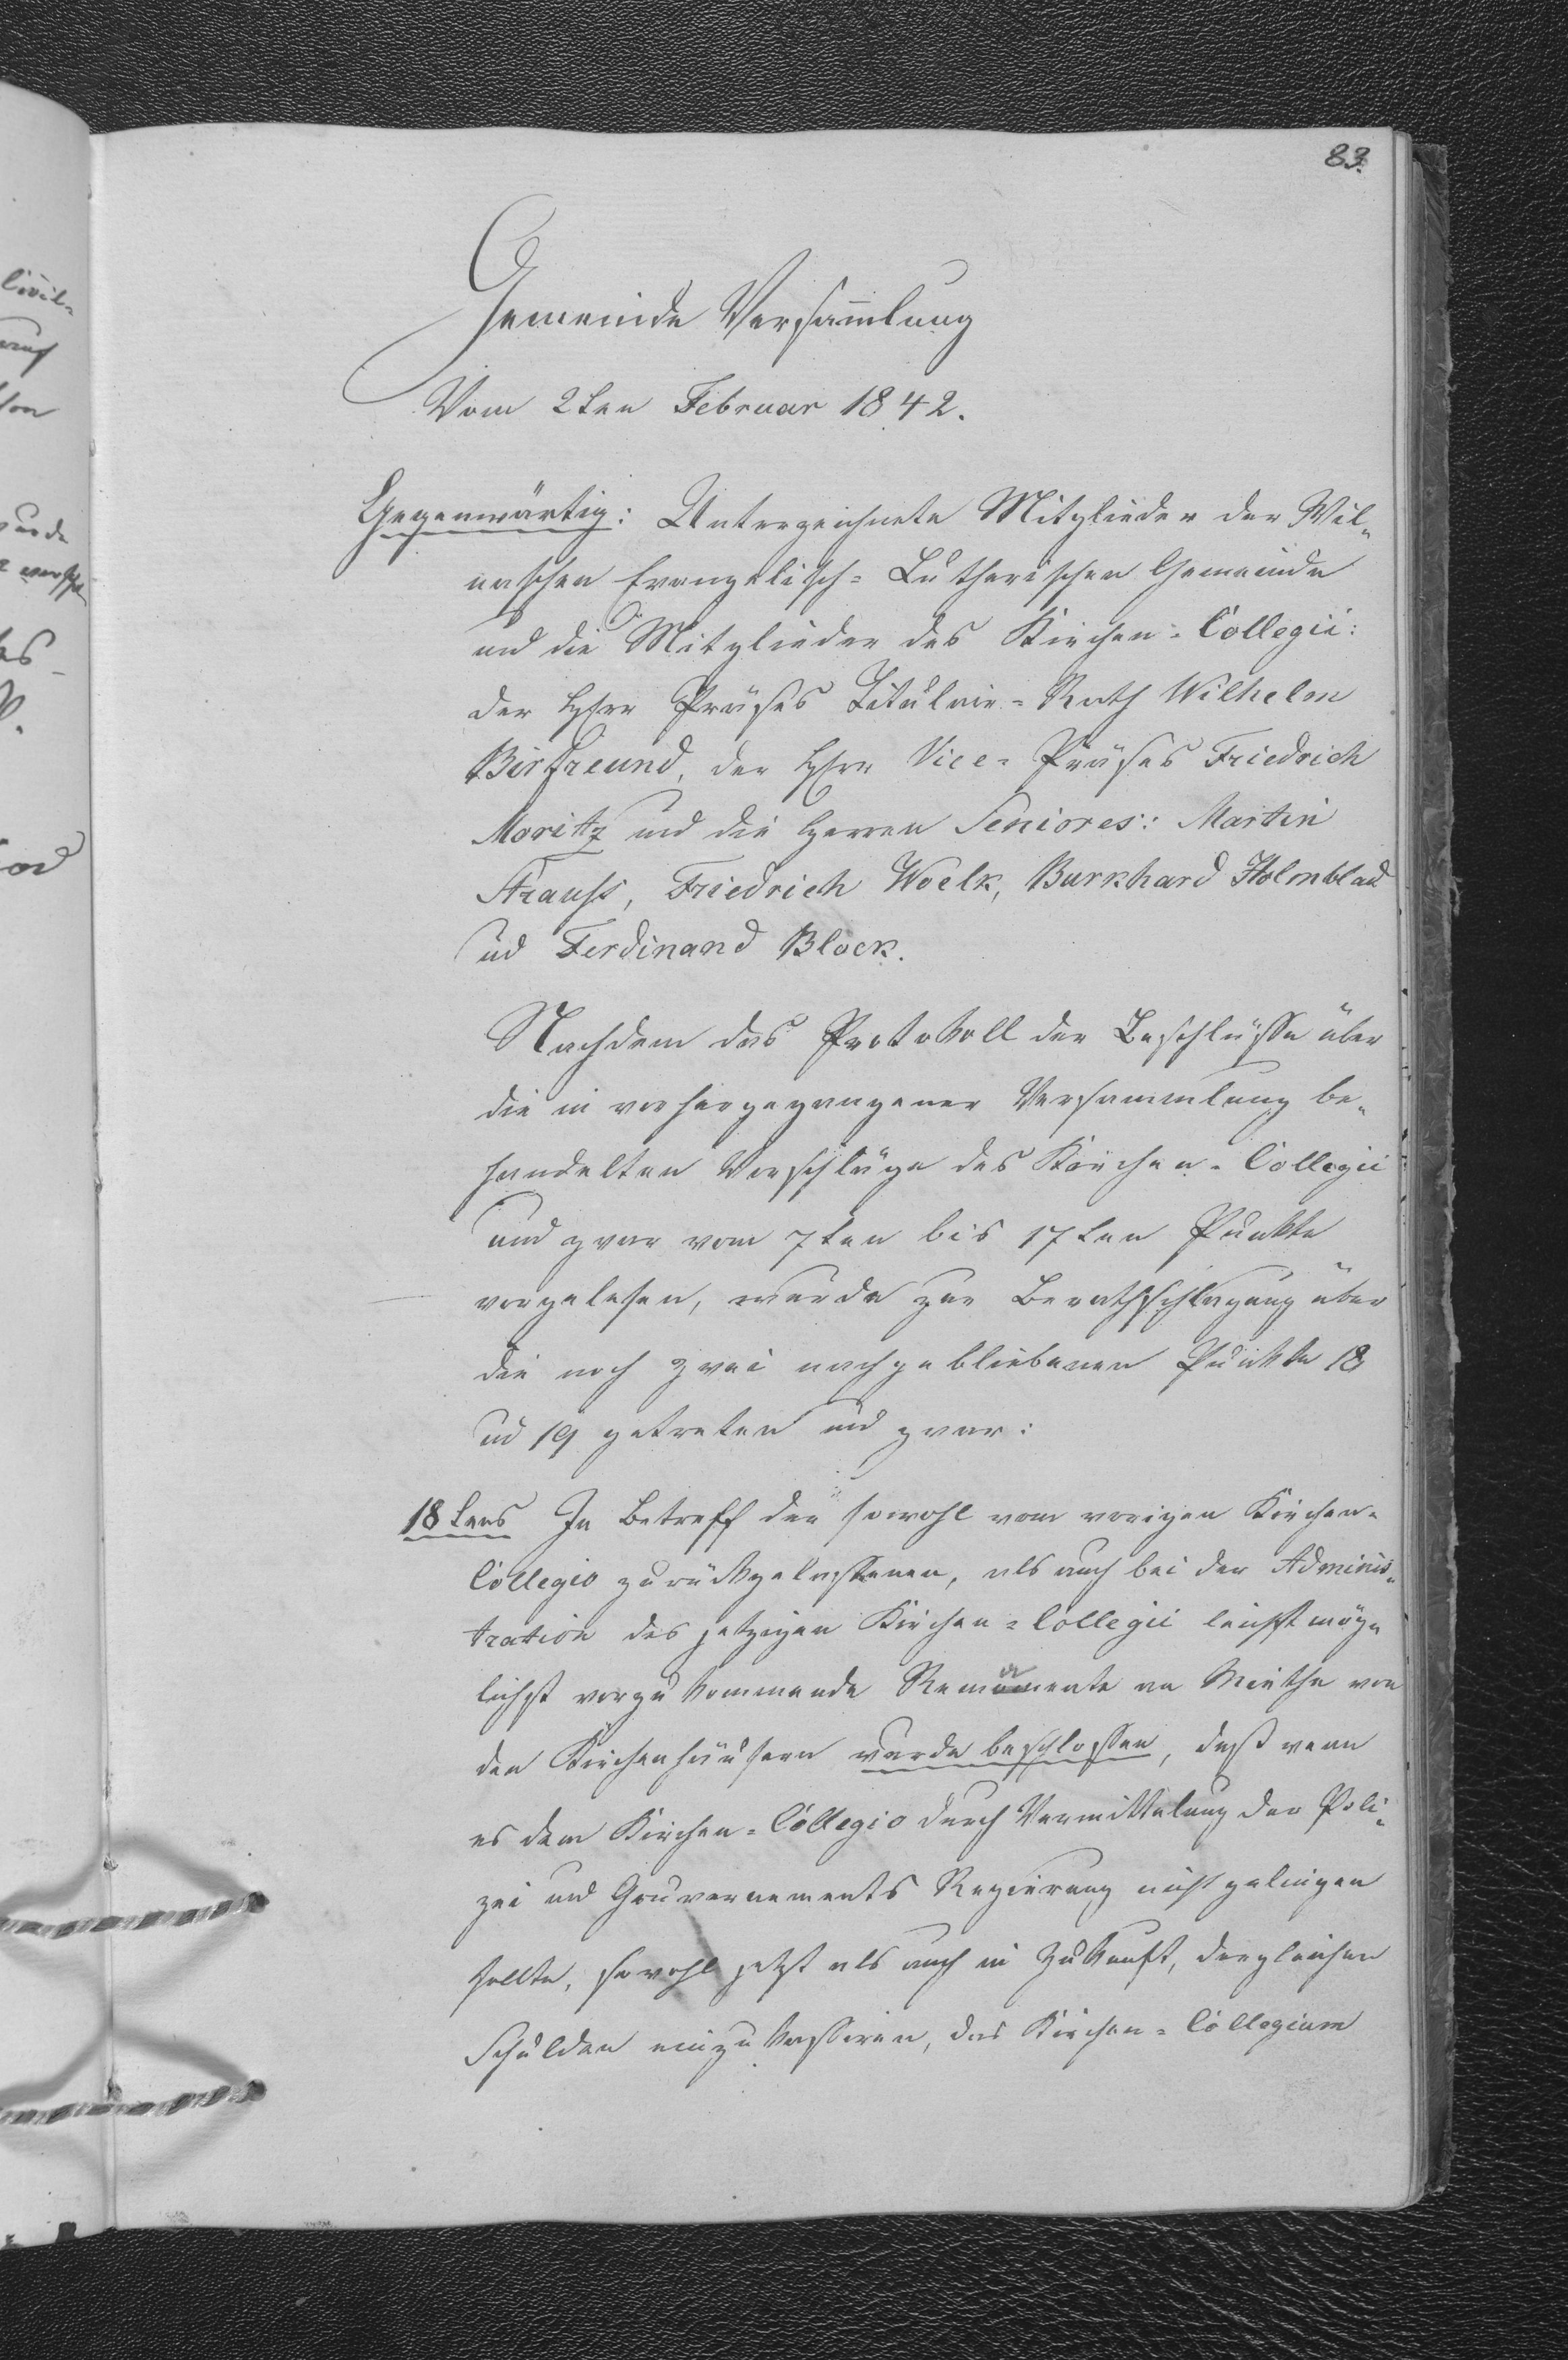 83.
Gemeinde Versam̄lung
Vom 2ten Februar 1842.
Gegenwärtig: Unterzeichnete Mitglieder der Wil-
naschen Evangelisch-Lutherischen Gemeinde
und die Mitglieder des Kirchen-Collegii:
der Herr Präses Titulair-Rath Wilhelm
Birfreund, der Herr Vice-Präses Friedrich
Moritz und die Herren Seniores: Martin
Strauss, Friedrich Woelk, Burkhard Holmblad
ud Ferdinand Block.
Nachdem das Protokoll der Beschlüsse über
die in vorhergegangener Versammlung be-
handelten Vorschläge des Kirchen-Collegii
und zwar vom 7ten bis 17ten Punkte
vorgelesen, wurde zur Berathschlagung über
die noch zwei nachgebliebenen Punkte 18
ud 19 getreten und zwar:
18tens In Betreff der sowohl vom vorigen Kirchen-
Collegio zurückgelassenen, als auch bei der Adminis-
tration des jetzigen Kirchen-Collegii leicht mög-
lichst vorzukommende Remanente an Miethe von
den Kirchenhäusern wurde beschlossen, daß wenn
es dem Kirchen-Collegio durch Vermittelung der Poli-
zei und Gouvernements Regierung nicht gelingen
sollte, sowohl jetzt als auch in Zukunft, dergleichen
Schulden einzukassiren, das Kirchen-Collegium